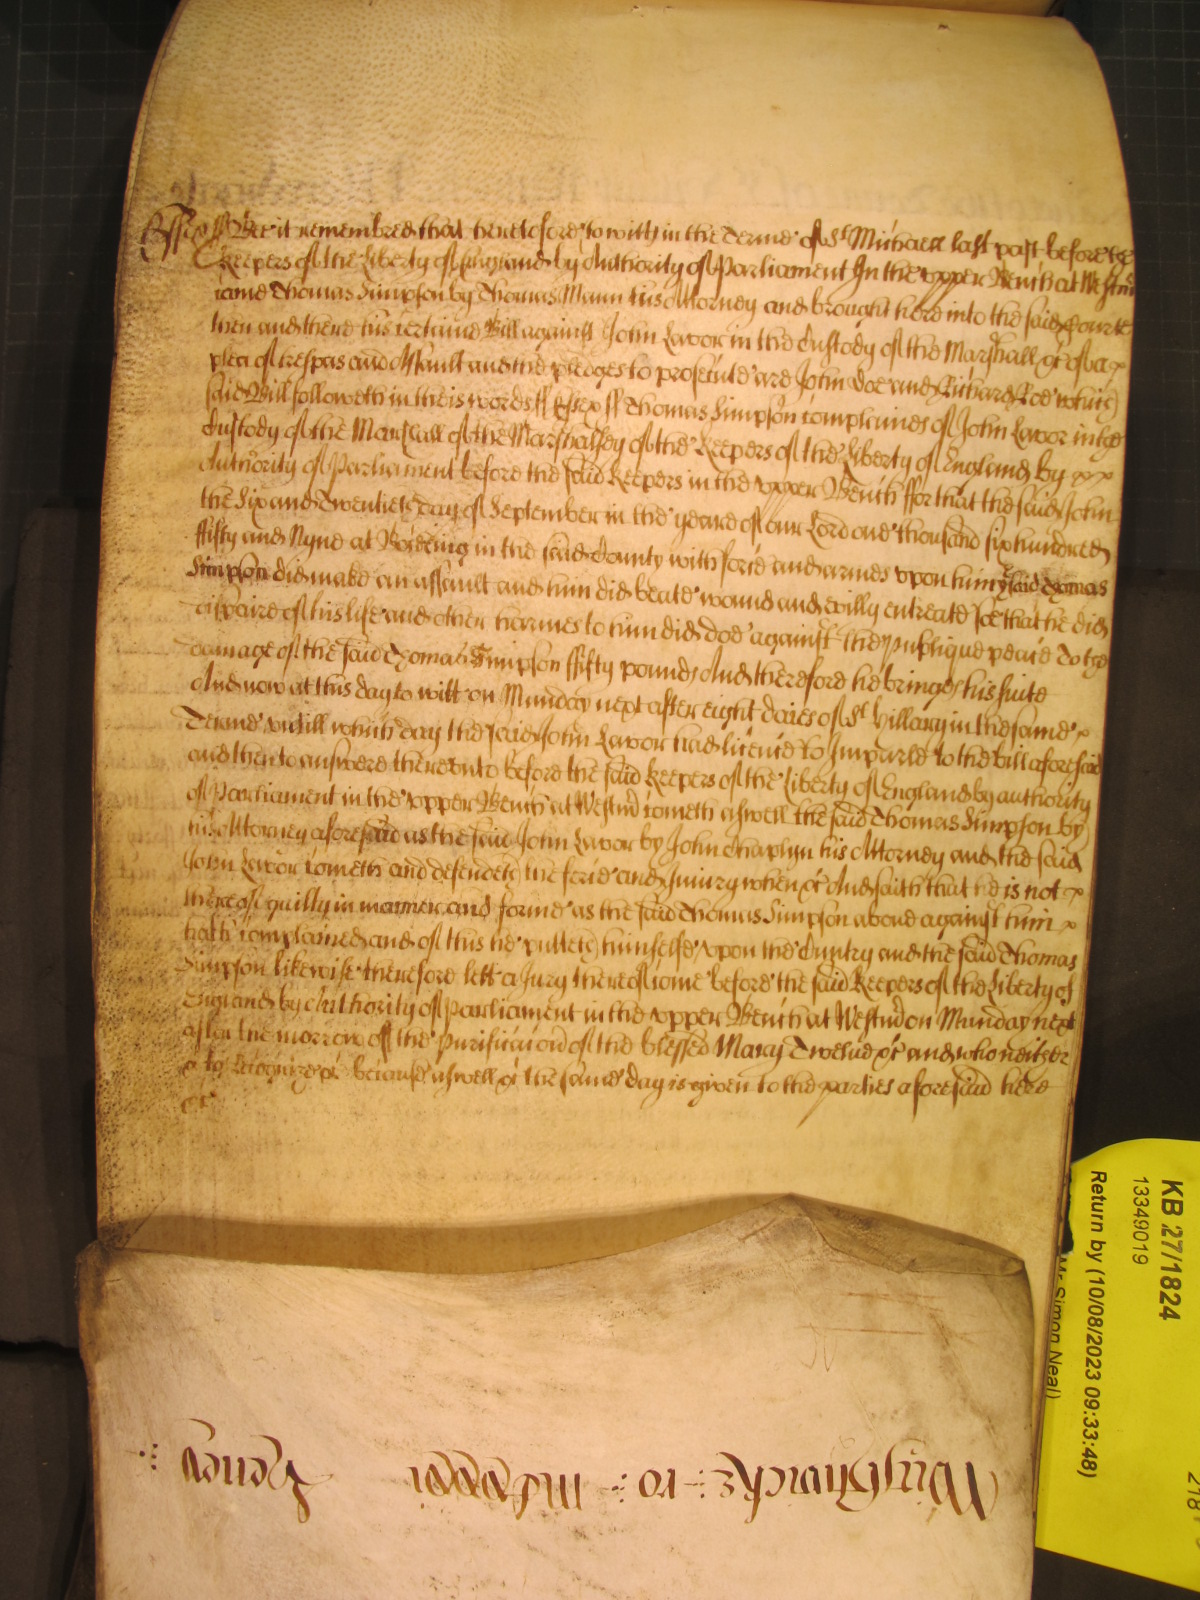 Essex ss Bee it remembred that heretofore to witt in the Terme of St Michaell last past before the
Keepers of the Liberty of England by Authority of Parliament In the upper Bench at Westmr
came Thomas Simpson by Thomas Mann his Attorney and brought here into the said Courte
then and there his certaine Bill against John Lavor in the Custody of the Marshall &c of a
plea of trespas and Assault and the pledges to prosecute are John Doe and Richard Roe which
said Bill followeth in theis words ss Essex ss Thomas Simpson complaines of John Lavor in the
Custody of the Marshall of the Marshalsey of the Keepers of the Liberty of England by
Authority of Parliament before the said Keepers in the upper Bench ffor that the said John
the Six and Twentieth day of September in the yeare of our Lord one thousand six hundred
ffifty and Nyne at in the said County with force and armes upon him ye said Thomas
Simpson did make an assault and him did beate wound and evilly entreate soe that he did
dispaire of his life and other harmes to him did doe against the publique peace To the
damage of the said Thomas Simpson ffifty pounds And therefore he brings his suite
And now at this day to witt on Munday next after eight daies of St Hillary in the same
Terme untill which day the said John Lavor had licence to Imparle to the bill aforesaid
and then to answere thereunto before the said Keepers of the Liberty of England by authority
of Parliament in the upper Bench at Westmr cometh aswell the said Thomas Simpson by
his Attorney aforesaid as the said John Lavor by John Chaplyn his Attorney and the said
John Lavor cometh and defendeth the force and Injury when &c And saith that he is not
thereof guilty in manner and forme as the said Thomas Simpson above against him
hath complained and of this he putteth himselfe upon the Cuntry and the said Thomas
Simpson likewise therefore lett a Jury thereof come before the said Keepers of the Liberty of
England by Authority of Parliament in the upper Bench at Westmr on Munday next
after the morrow of the purificacion of the blessed Mary Twelve &c and who neither
&c to recognize &c because aswell &c the same day is given to the parties aforesaid here
&c
KB 27/1824
13349019
Return by (10/08/2023 09:33:48)
Mr Simon Neal)